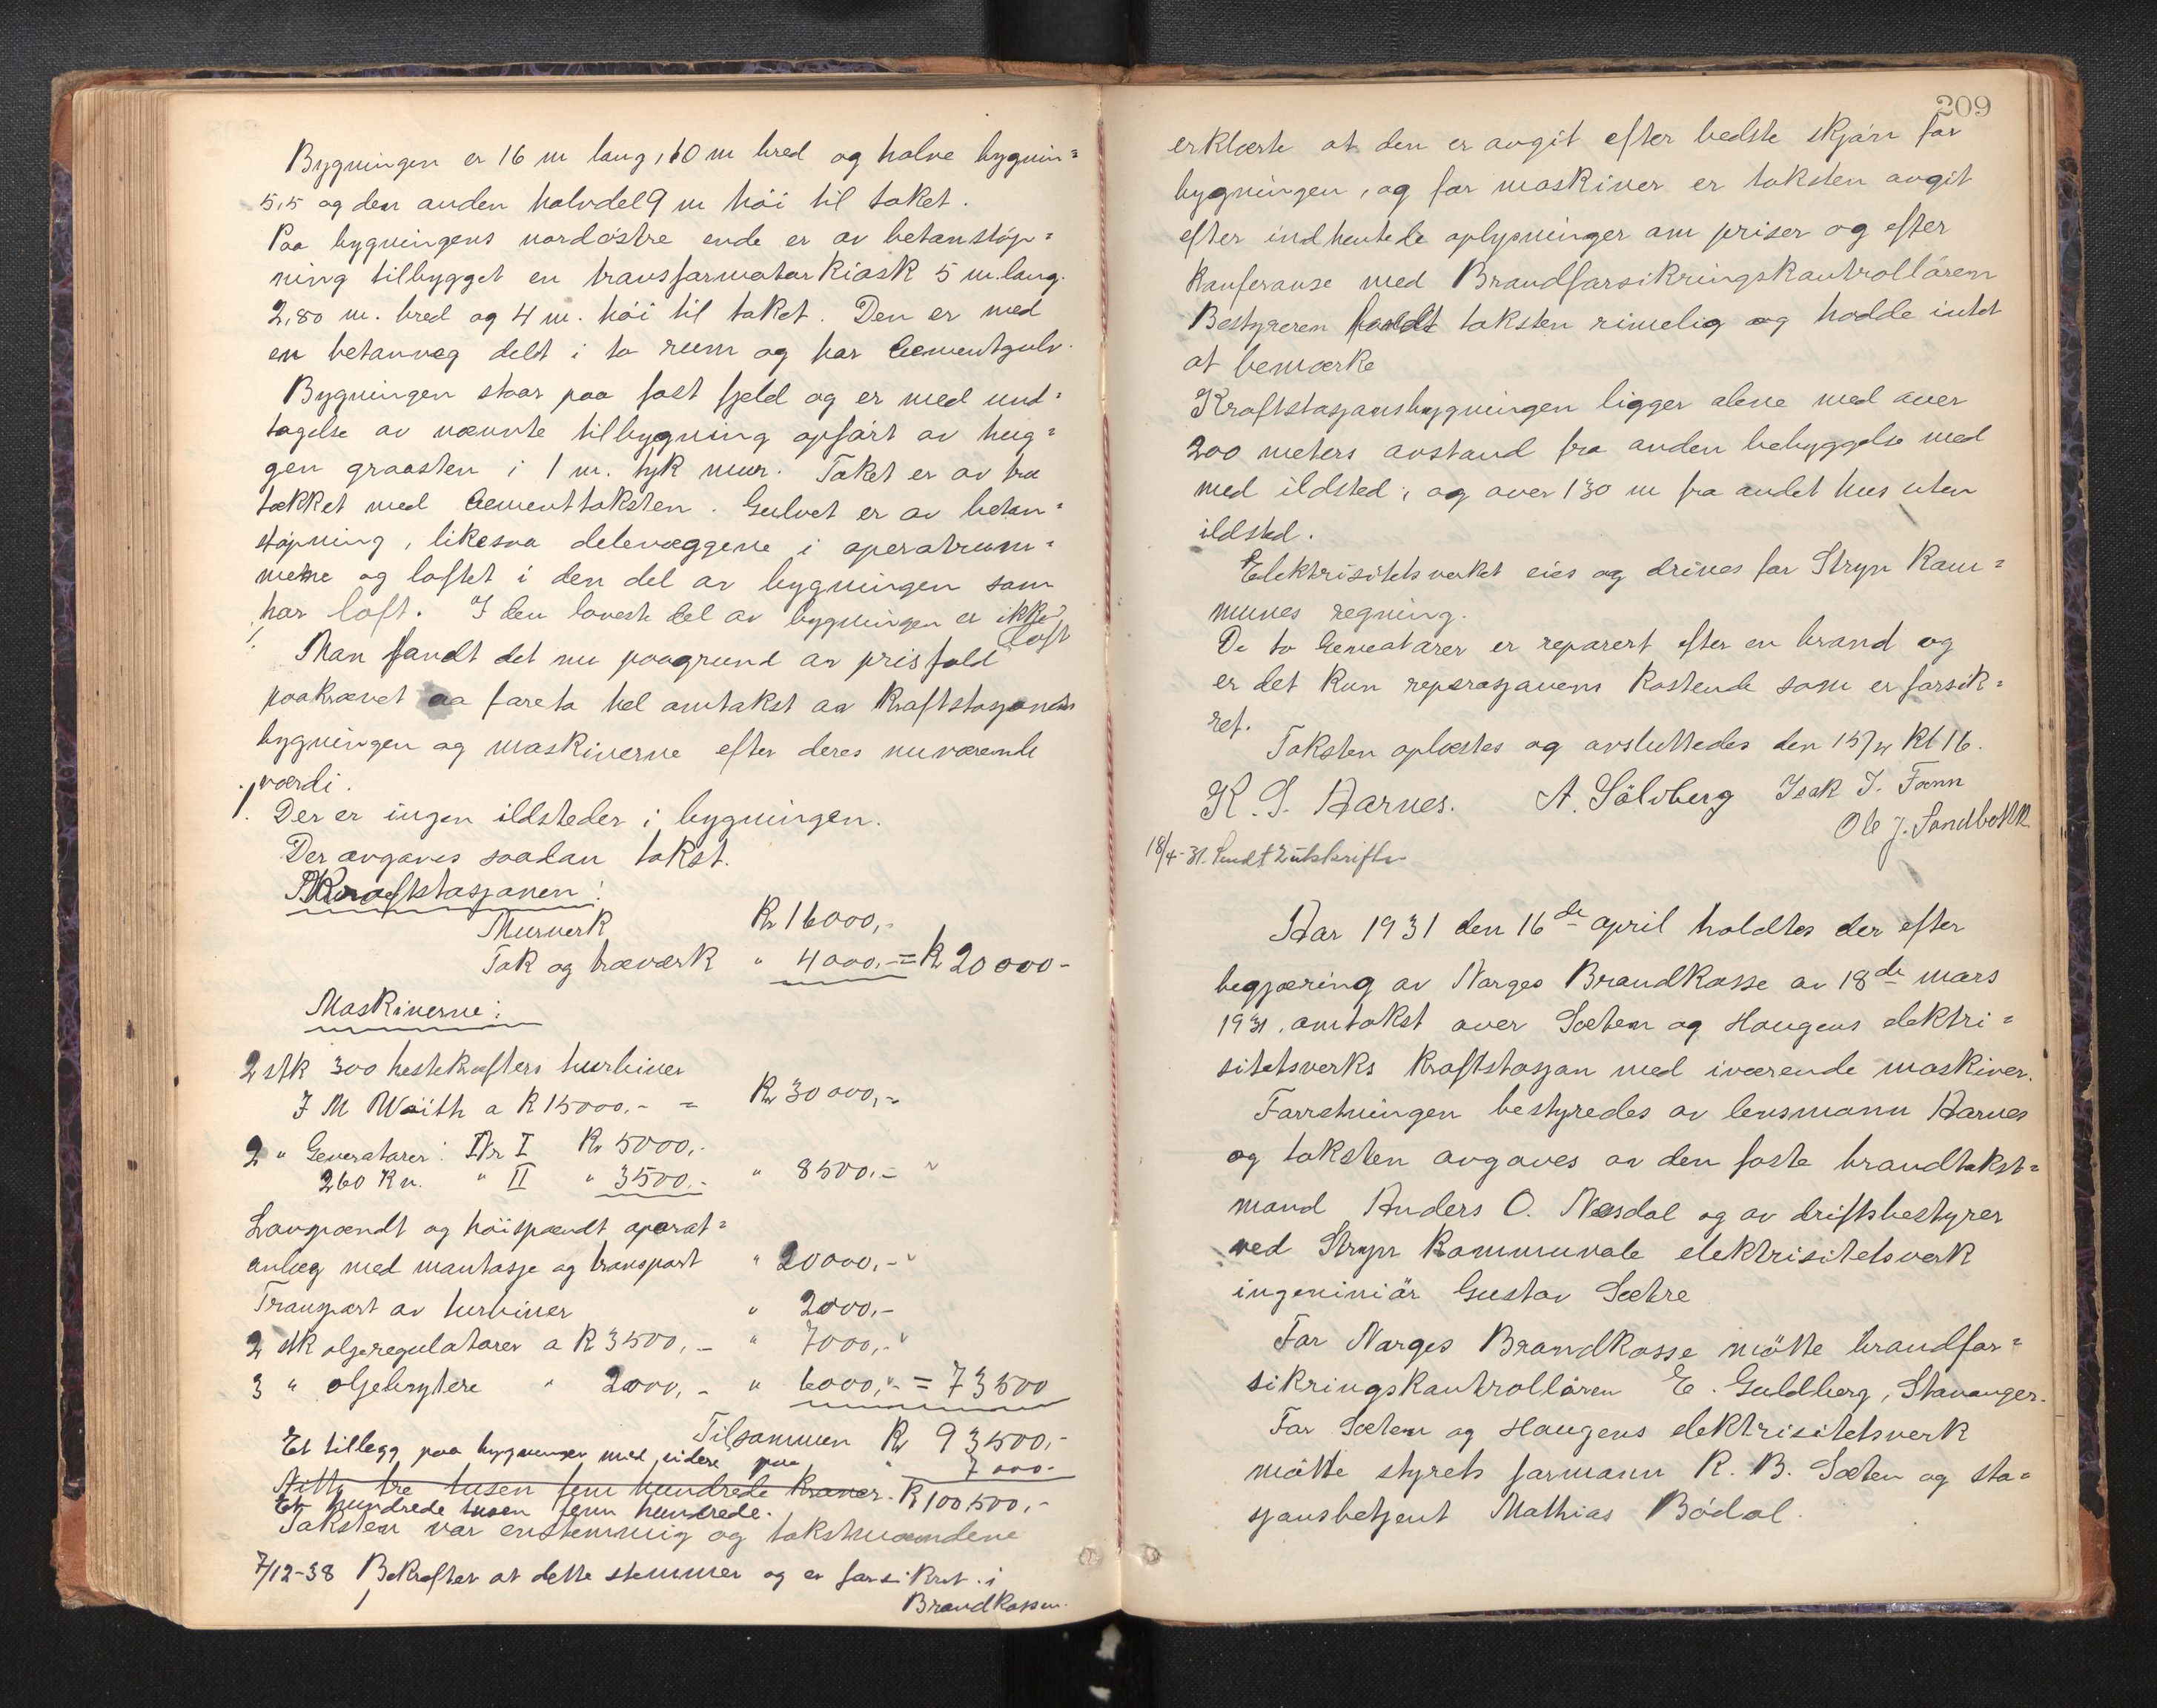 Bygningen er 16 m lang, 10 m bred og halve bygnin=
5,5 og den anden halvdel 9 m höi til taket.
Paa bygningens nordöstre ende er av betonstöp=
ning tilbygget en transformator kiosk 5 m. lang.
2,80 m. bred og 4 m. höi til taket. Den er med
en betonvæg delt i to rum og har Cementgulv.
Bygningen staar paa fast fjeld og er med und=
tagelse av nævnte tilbygning opfört av hug=
gen graasten i 1 m. tyk mur. Taket er av træ
tækket med Cementtaksten. Gulvet er av beton=
stöpning, likesaa delevæggene i operatrum=
mene og loftet i den del av bygningen som
har loft. I den laveste del av bygningen er ikke
loft
Man fandt det nu paagrund av prisfald
paakrævet aa foreta hel omtakst av Kraftstasjonens
bygningen og maskinerne efter deres nuværende
værdi.
Der er ingen ildsteder i bygningen.
Der avgaves saadan takst.
Kraftstasjonen:
Murverk Kr 16000,-
Tak og træværk " 4000,- = Kr 20000-
Maskinerne:
2 stk 300 hestekrafters turbiner
J M Woith a Kr 15000.- = Kr 30000,-
2 " Generatorer: Nr I Kr 5000,-
260 Kv. " II " 3500.- " 8500.- "
Lavspændt og höispændt aparat=
anlæg med montasje og transport " 20000,- "
Transport av turbiner " 2000,-
2 stk oljeregulatorer a Kr 3500,- " 7000,- "
3 " oljebrytere " 2000,- " 6000,- = 73500
Tilsammen Kr 93500,-
Et tillegg paa bygninger med videre paa " 7000-
Nitti tre tusen fem hundrede kroner. Kr 100,500,-
Et hundrede tusen fem hundrede.
Taksten var enstemmig og takstmændene
7/12-38 Bekrefter at dette stemmer og er forsikret i
Brandkassen.
209
erklærte at den er avgit efter bedste skjön for
bygningen, og for maskiner er taksten avgit
efter indhentede oplysninger om priser og efter
Konferanse med Brandforsikringskontrollören
Bestyreren fandt taksten rimelig og hadde intet
at bemærke
Kraftstasjonsbygningen ligger alene med over
200 meters avstand fra anden bebyggelse med
med ildsted, og over 130 m fra andet hus uten
ildsted.
Elektrisitetsverket eies og drives for Stryn Kom=
munes regning.
De to Generatorer er reparert efter en brand og
er det kun reparasjonens kostende som er forsik=
ret.
Taksten oplæstes og avsluttedes den 15/4 Kl 16.
K. S. Aarnes. A. Sölvberg Isak J. Fænn
Ole J. Sandbakk
18/4-31. Sendt 2 utskrifter
Aar 1931 den 16de april holdtes der efter
begjæring av Norges Brandkasse av 18de mars
1931, omtakst over Sæten og Haugens elektri=
sitetsverks Kraftstasjon med iværende maskiner.
Forretningen bestyredes av lensmann Aarnes
og taksten avgaves av den faste brandtakst=
mand Anders O. Næsdal og av driftsbestyrer
ved Stryn Kommunale elektrisitetsverk
ingeniniör Gustav Sætre
For Norges Brandkasse mötte brandfor=
sikringskontrollören E. Guldberg, Stavanger.
For Sæten og Haugens elektrisitetsverk
mötte styrets formann R. B. Sæten og sta=
sjonsbetjent Mathias Bödal.